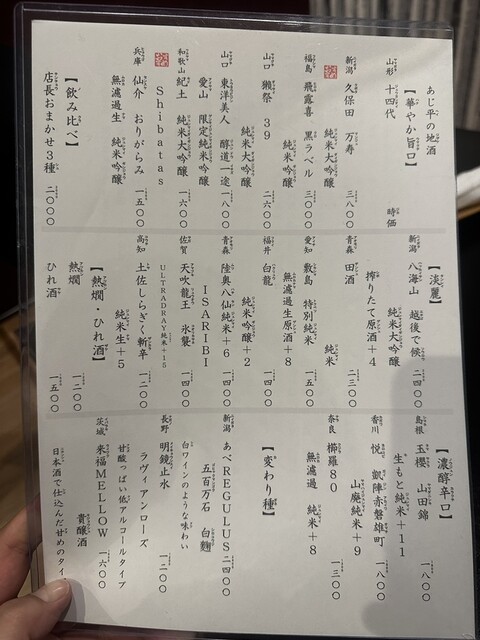 あじ平の地酒
【華やか旨口】
山形 十四代 時価
新潟 久保田 万寿
純米大吟醸 三八〇〇
福島 飛露喜 黒ラベル
純米吟醸 三〇〇〇
山口 獺祭 39
純米大吟醸 二六〇〇
山口 東洋美人 醇道一途
愛山 限定純米吟醸 一八〇〇
和歌山 紀土 純米大吟醸
Shibatas 一六〇〇
兵庫 仙介 おりがらみ
無濾過生 純米吟醸 一五〇〇
【飲み比べ】
店長おまかせ3種 二〇〇〇
【淡麗】
新潟 八海山 越後で候
純米大吟醸 二四〇〇
青森 田酒
搾りたて原酒+4 二三〇〇
愛知 敷島 特別純米
無濾過生原酒+8 一五〇〇
福井 白龍
純米吟醸+2 一四〇〇
青森 陸奥八仙 純米+6
ISARIBI 一四〇〇
佐賀 天吹龍王 氷襲
ULTRADRAY純米+15 一四〇〇
高知 土佐しらぎく 斬辛
純米生+5 一五〇〇
【熱燗・ひれ酒】
熱燗 一二〇〇
ひれ酒 一五〇〇
【濃醇辛口】
島根 玉櫻 山田錦
生もと純米+11 一八〇〇
香川 悦 凱陣赤磐雄町
山廃純米+9 一八〇〇
奈良 櫛羅80
無濾過 純米+8 一三〇〇
【変わり種】
新潟 あべREGULUS 二四〇〇
五百万石 白麹
白ワインのような味わい
長野 明鏡止水
ラヴィアンローズ 一二〇〇
甘酸っぱい低アルコールタイプ
茨城 来福MELLOW
貴醸酒 一六〇〇
日本酒で仕込んだ甘めのタイ